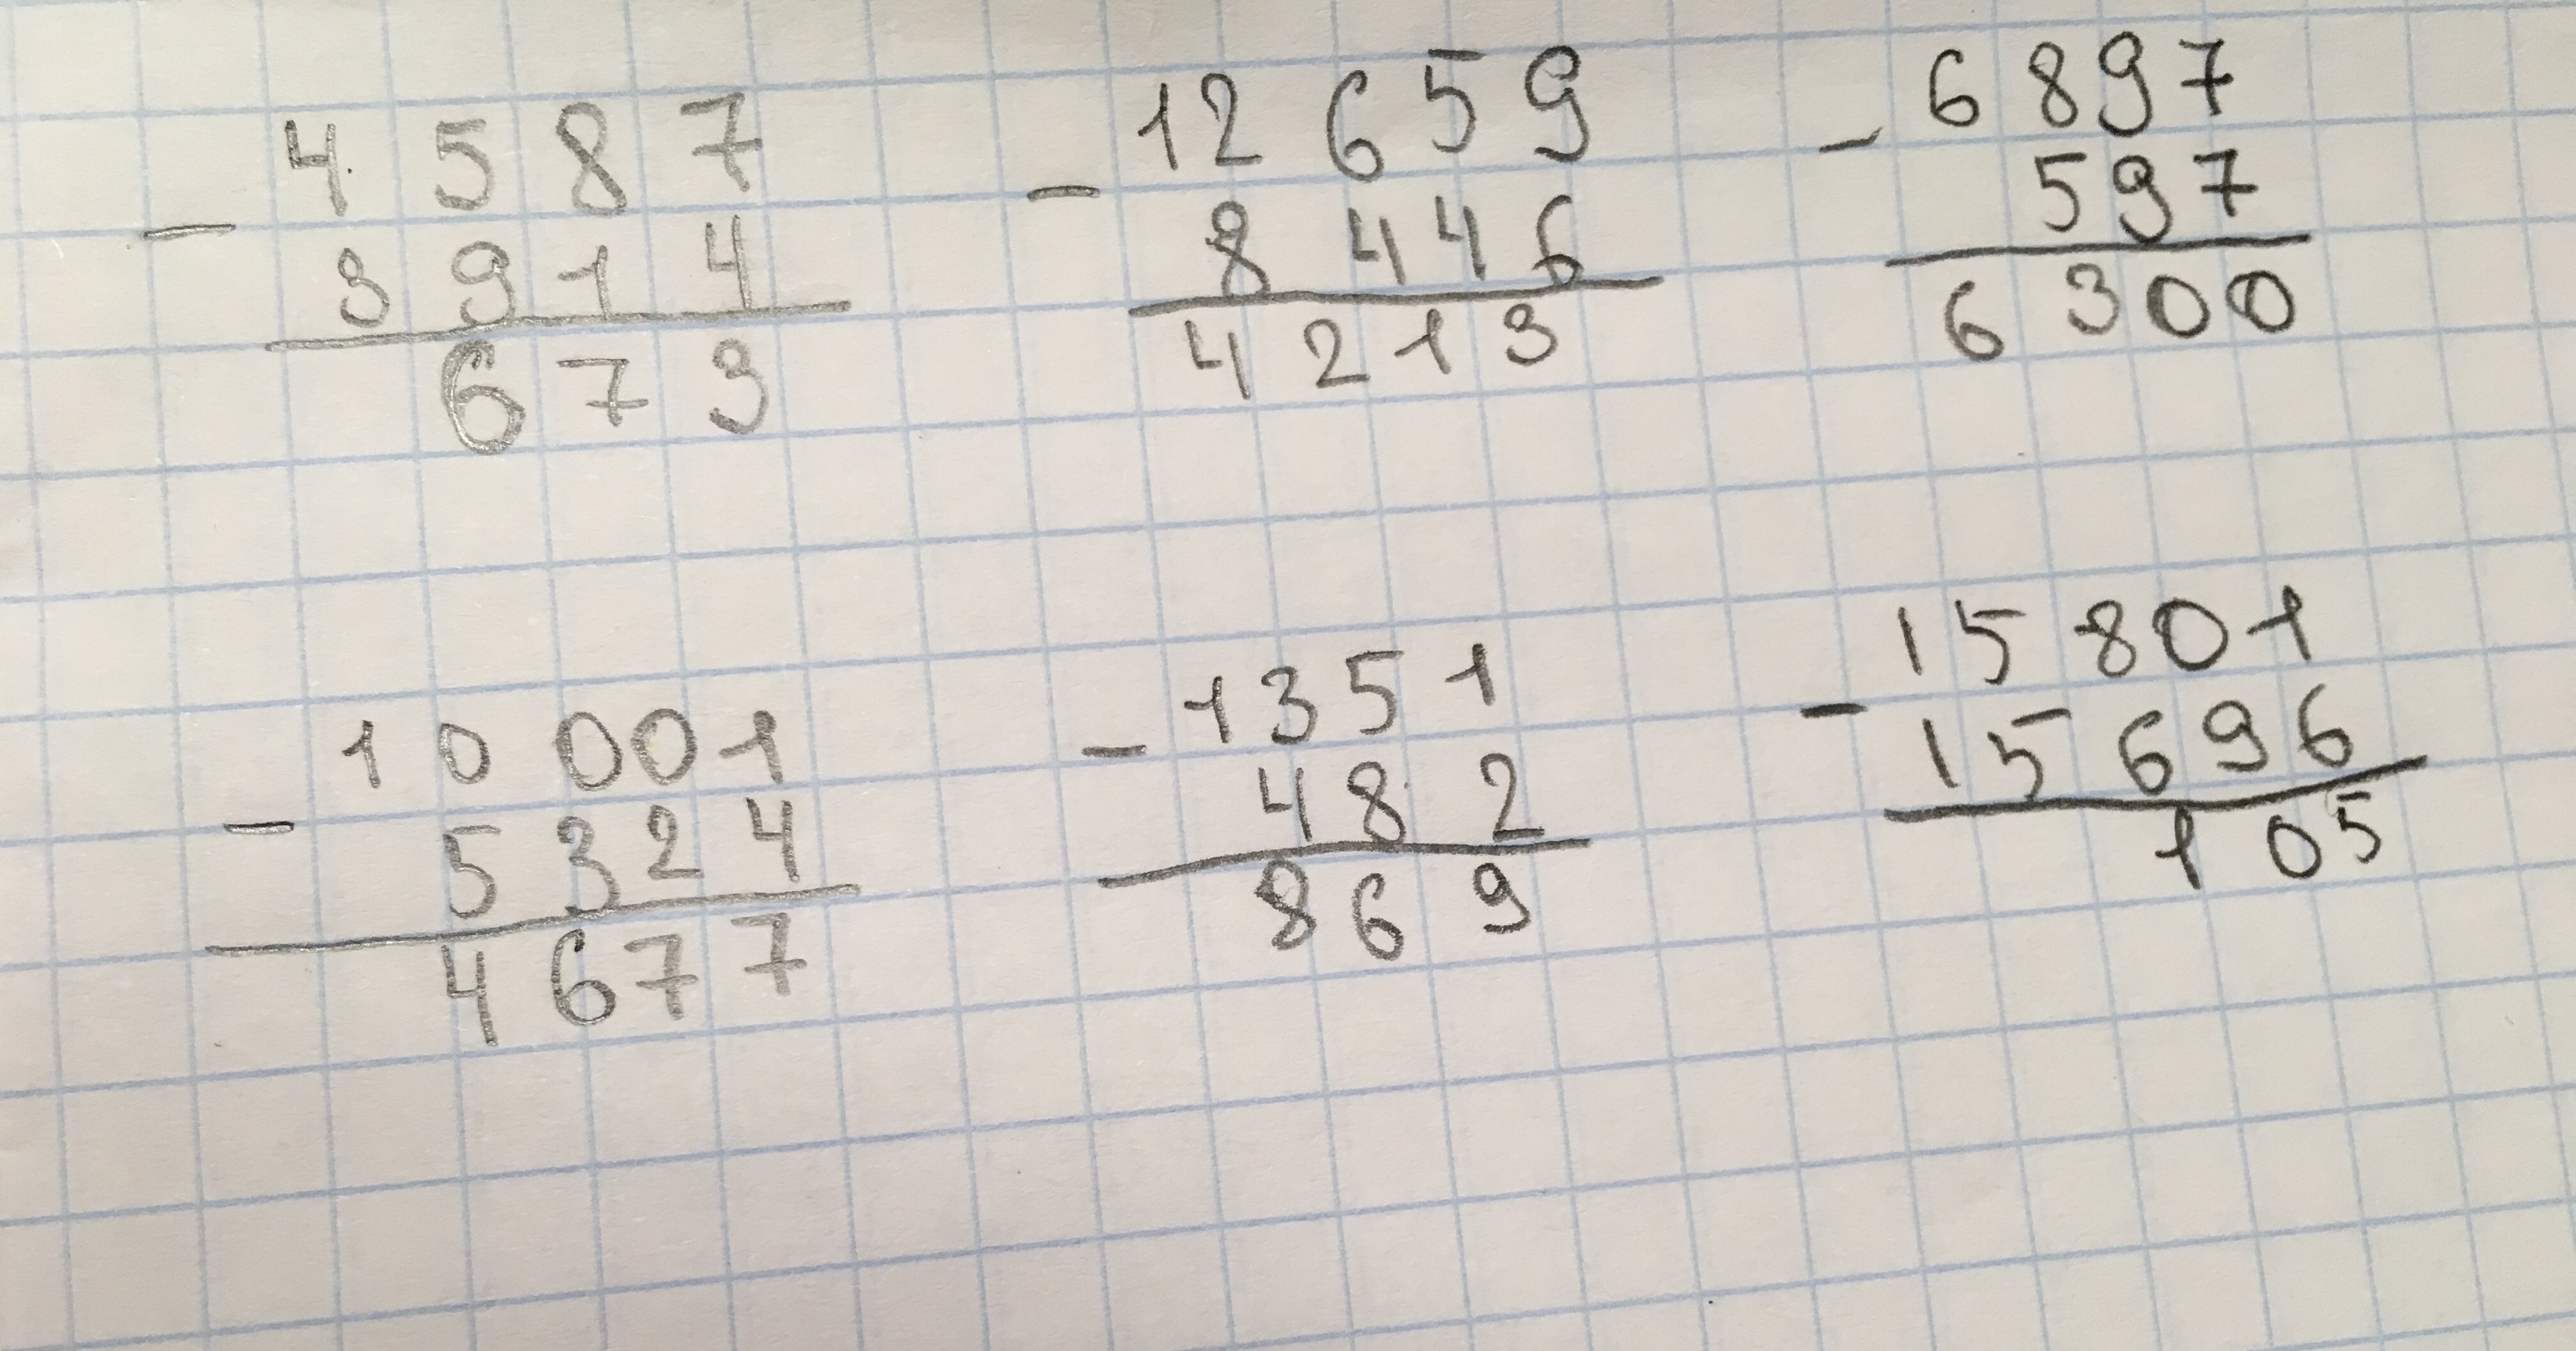 4587
- 3914
673
12659
- 8446
4213
6897
- 597
6300
10001
- 5324
4677
1351
- 482
869
15801
- 15696
105